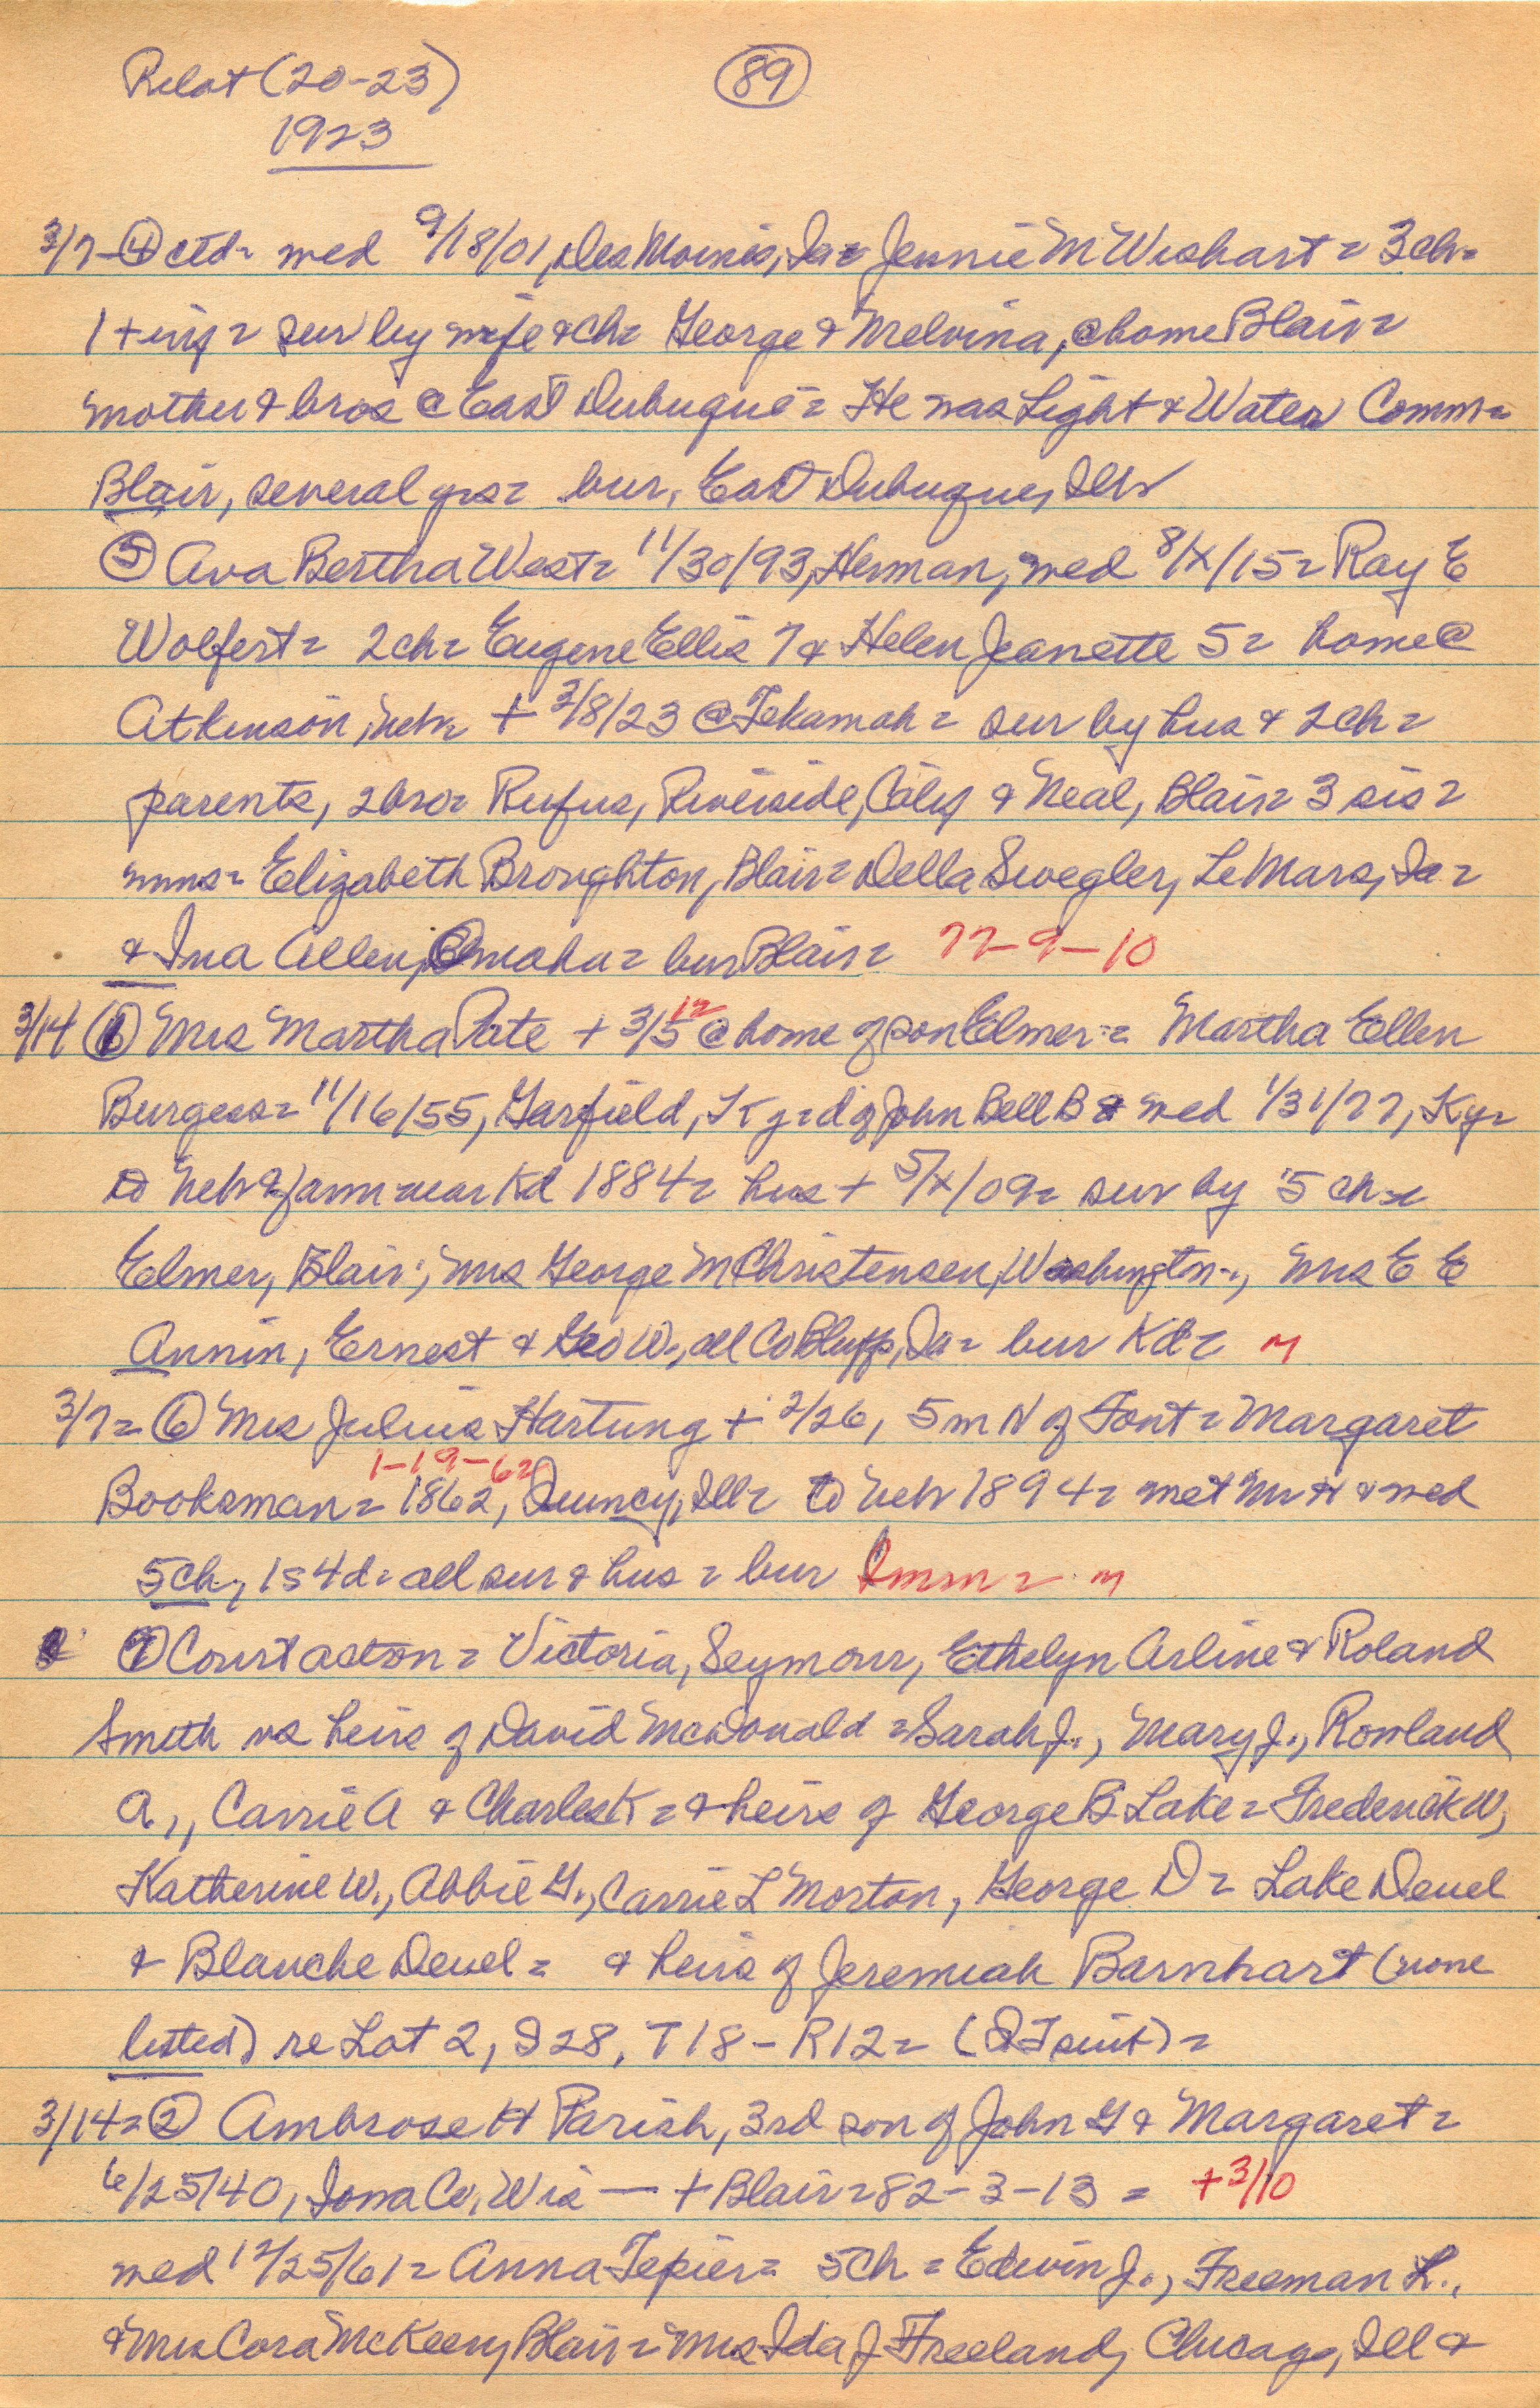 Relat (20-23)
89
1923
3/7-④ ctd= med 9/18/01, Des Moines, Ia= Jennie M Wishart= 3ch=
1 + inf= sur by wife & ch= George & Melvina, @ home Blair=
mother & bros @ East Dubuque= He was Light & Water Comm=
Blair, several yrs= bur, East Dubuque, Ill=
⑤ Ava Bertha West= 11/30/93, Herman, med 8/x/15= Ray E
Wolfert= 2ch= Eugene Ellis 7 & Helen Jeanette 5= home @
Atkinson, Neb= + 3/8/23 @ Tekamah= sur by hus & 2ch=
parents, 2bro= Rufus, Riverside, Calif & Neal, Blair= 3 sis=
mms= Elizabeth Broughton, Blair= Della Swegler, LeMars, Ia=
& Ina Allen, Omaha= bur Blair= 77-9-10
3/14 ① Mrs Martha Pate + 3/5 12 @ home of son Elmer= Martha Ellen
Burgess= 11/16/55, Garfield, Ky= d of John Bell B & med 1/31/77, Ky=
to Neb & farm near Kd 1884= hus + 5/x/09= sur by 5 ch=
Elmer, Blair; Mrs George M Christensen, Washington-, Mrs E E
Annin, Ernest & Geo W., all Co Bluffs, Ia= bur Kd= M
3/7= ⑥ Mrs Julius Hartung + 2/26, 5m N of Font= Margaret
1-19-62
Booksman= 1862, Quincy, Ill= to Neb 1894= met Mr H & med
5ch, 1s 4d= all sur & hus= bur Imm= M
⑦ Court action= Victoria, Seymour, Ethelyn Arline & Roland
Smith vs heirs of David McDonald= Sarah J., Mary J., Rowland
A., Carrie A & Charles K= & heirs of George B Lake= Frederick W,
Katherine W., Abbie G., Carrie L Morton, George D= Lake Deuel
& Blanche Deuel= & heirs of Jeremiah Barnhart (none
listed) re Lot 2, S28, T18-R12= (QT suit)=
3/14= ② Ambrose H Parish, 3rd son of John G & Margaret=
6/25/40, Iowa Co, Wis — + Blair= 82-3-13= +3/10
med 12/25/61= Anna Tepier= 5ch= Edwin J., Freeman L.,
& Mrs Cora McKeen, Blair= Mrs Ida J Freeland, Chicago, Ill &